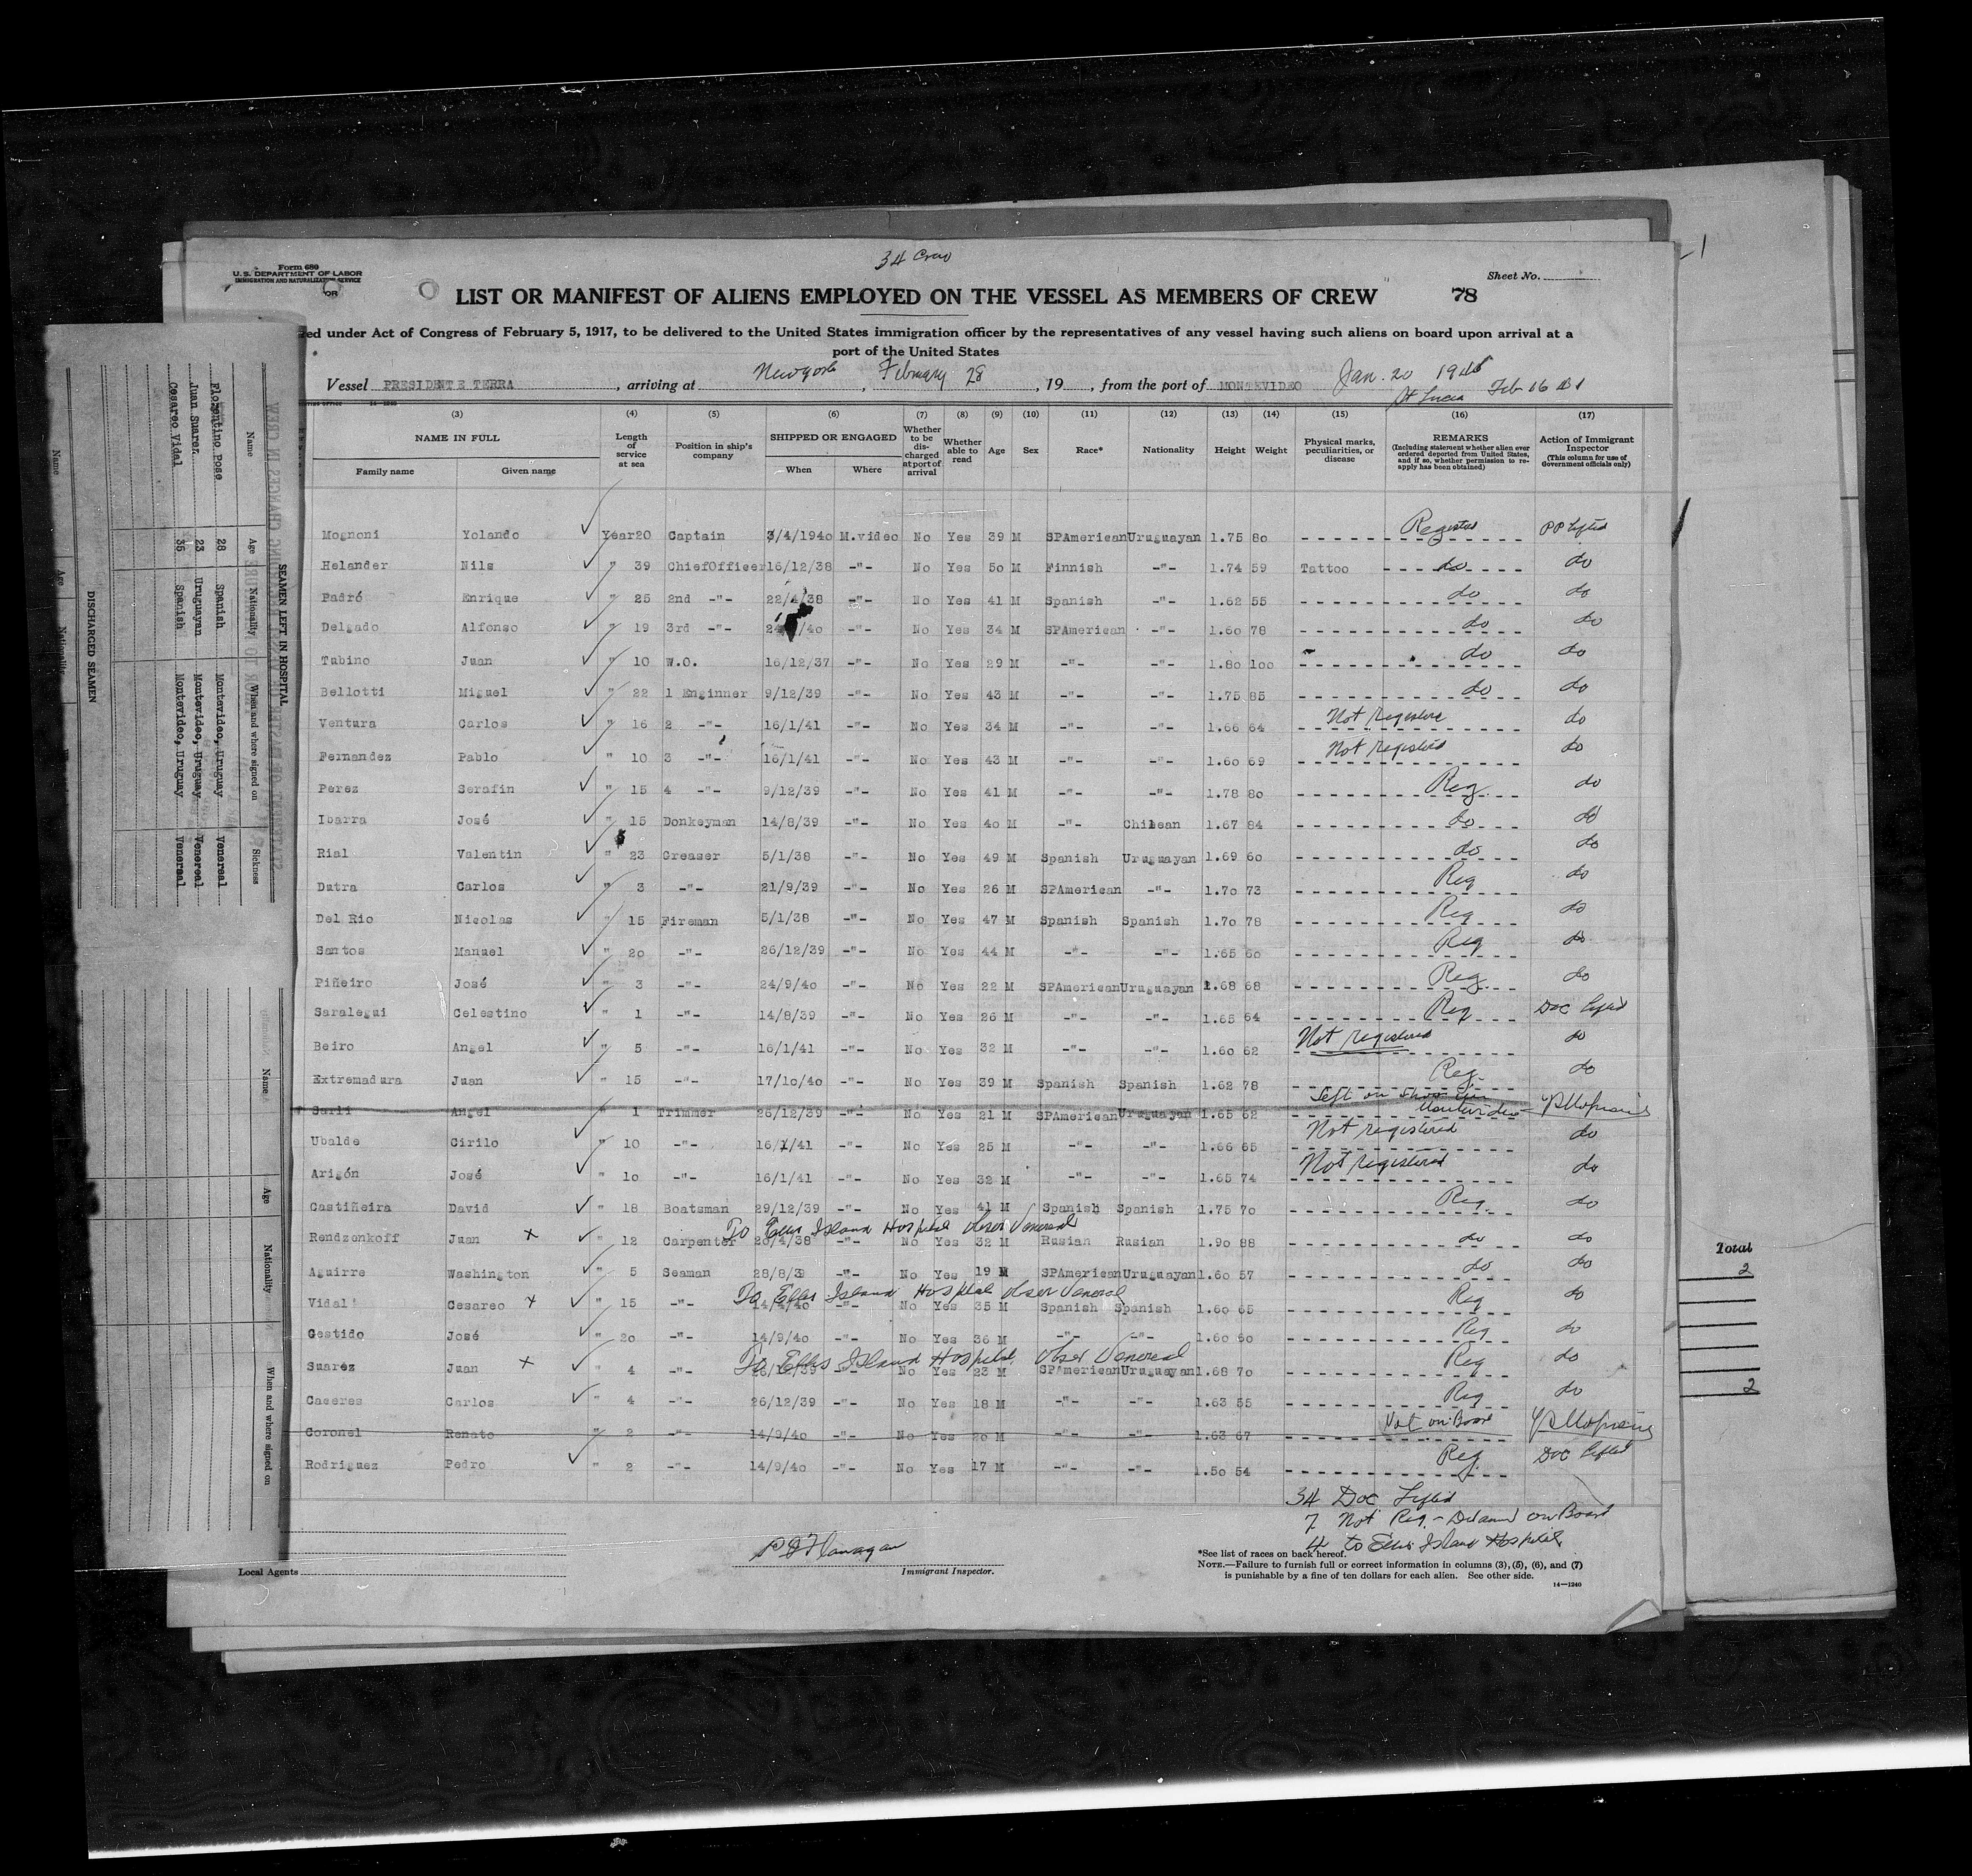 34 Crew
Form 680
U.S. DEPARTMENT OF LABOR
IMMIGRATION AND NATURALIZATION SERVICE
Sheet No.
LIST OR MANIFEST OF ALIENS EMPLOYED ON THE VESSEL AS MEMBERS OF CREW 78
under Act of Congress of February 5, 1917, to be delivered to the United States immigration officer by the representatives of any vessel having such aliens on board upon arrival at a
port of the United States
Vessel PRESIDENTE TERRA, arriving at New York, February 28, 19, from the port of MONTEVIDEO Jan. 20 1941
St Lucia Feb 16 41
(3) (4) (5) (6) (7) (8) (9) (10) (11) (12) (13) (14) (15) (16) (17)
NAME IN FULL Family name Given name Length of service at sea Position in ship's company SHIPPED OR ENGAGED When Where Whether to be discharged at port of arrival Whether able to read Age Sex Race* Nationality Height Weight Physical marks, peculiarities, or disease REMARKS (Including statement whether alien ever ordered deported from United States, and if so, whether permission to reapply has been obtained) Action of Immigrant Inspector (This column for use of Government officials only)
Mognoni Yolando Year20 Captain 3/4/1940 M.video No Yes 39 M SPAmerican Uruguayan 1.75 80 Registered PP Lifted
Helander Nils " 39 ChiefOfficer 16/12/38 -"- No Yes 50 M Finnish -"- 1.74 59 Tattoo do do
Padré Enrique " 25 2nd -"- 22/4/38 -"- No Yes 41 M Spanish -"- 1.62 55 do do
Delgado Alfonso " 19 3rd -"- /40 -"- No Yes 34 M SPAmerican -"- 1.60 78 do do
Tabino Juan " 10 W.O. 16/12/37 -"- No Yes 29 M -"- -"- 1.80 100 do do
Bellotti Miguel " 22 1 Enginner 9/12/39 -"- No Yes 43 M -"- -"- 1.75 85 do do
Ventura Carlos " 16 2 -"- 16/1/41 -"- No Yes 34 M -"- -"- 1.66 64 Not registered do
Fernandez Pablo " 10 3 -"- 16/1/41 -"- No Yes 43 M -"- -"- 1.60 69 Not registered do
Perez Serafin " 15 4 -"- 9/12/39 -"- No Yes 41 M -"- -"- 1.78 80 Reg. do
Ibarra José " 15 Donkeyman 14/8/39 -"- No Yes 40 M -"- Chilean 1.67 84 do do
Rial Valentin " 23 Greaser 5/1/38 -"- No Yes 49 M Spanish Uruguayan 1.69 60 do do
Dutra Carlos " 3 -"- 21/9/39 -"- No Yes 26 M SPAmerican -"- 1.70 73 Reg do
Del Rio Nicolas " 15 Fireman 5/1/38 -"- No Yes 47 M Spanish Spanish 1.70 78 Reg do
Santos Manuel " 20 -"- 26/12/39 -"- No Yes 44 M -"- -"- 1.65 60 Reg do
Piñeiro José " 3 -"- 24/9/40 -"- No Yes 22 M SPAmerican Uruguayan 1.68 68 Reg. do
Saralegui Celestino " 1 -"- 14/8/39 -"- No Yes 26 M -"- -"- 1.65 64 Reg Doc Lifted
Beiro Angel " 5 -"- 16/1/41 -"- No Yes 32 M -"- -"- 1.60 62 Not registered do
Extremadura Juan " 15 -"- 17/10/40 -"- No Yes 39 M Spanish Spanish 1.62 78 Reg. do
Sarli Angel " 1 Trimmer 26/12/39 -"- No Yes 21 M SPAmerican Uruguayan 1.65 62 Left on shore in Montevideo
Ubalde Cirilo " 10 -"- 16/1/41 -"- No Yes 25 M -"- -"- 1.66 65 Not registered do
Arigón José " 10 -"- 16/1/41 -"- No Yes 32 M -"- -"- 1.65 74 Not registered do
Castiñeira David " 18 Boatsman 29/12/39 -"- No Yes 41 M Spanish Spanish 1.75 70 Reg. do
To Ellis Island Hospital Obser Venereal
Rendzonkoff Juan x " 12 Carpenter 26/4/38 -"- No Yes 32 M Rusian Rusian 1.90 88 do do
Aguirre Washington " 5 Seaman 28/8/39 -"- No Yes 19 M SPAmerican Uruguayan 1.60 57 do do
To Ellis Island Hospital Obser Venereal
Vidal Cesareo x " 15 -"- 14/4/40 -"- No Yes 35 M Spanish Spanish 1.60 65 Reg do
Gestido José " 20 -"- 14/9/40 -"- No Yes 36 M -"- -"- 1.60 60 Reg do
To Ellis Island Hospital. Obser Venereal
Suarez Juan x " 4 -"- 26/12/39 -"- No Yes 23 M SPAmerican Uruguayan 1.68 70 Reg do
Caceres Carlos " 4 -"- 26/12/39 -"- No Yes 18 M -"- -"- 1.63 55 Reg do
Coronel Renato " 2 -"- 14/9/40 -"- No Yes 20 M -"- -"- 1.63 67 Not on Board
Rodriguez Pedro " 2 -"- 14/9/40 -"- No Yes 17 M -"- -"- 1.50 54 Reg. Doc Lifted
34 Doc Lifted
7 Not Reg. - Detained on Board
4 to Ellis Island Hospital
P J Flanagan
Immigrant Inspector.
Local Agents
*See list of races on back hereof.
NOTE.—Failure to furnish full or correct information in columns (3), (5), (6), and (7)
is punishable by a fine of ten dollars for each alien. See other side.
14—1240
SEAMEN LEFT IN HOSPITAL
Name Age Nationality When and where signed on Sickness
Florentino Pose 28 Spanish Montevideo, Uruguay Venereal
Juan Suarez 23 Uruguayan Montevideo, Uruguay Venereal
Cesareo Vidal 35 Spanish Montevideo, Uruguay Venereal
DISCHARGED SEAMEN
Name Age Nationality When and where signed on
Name Age
Total
2
2